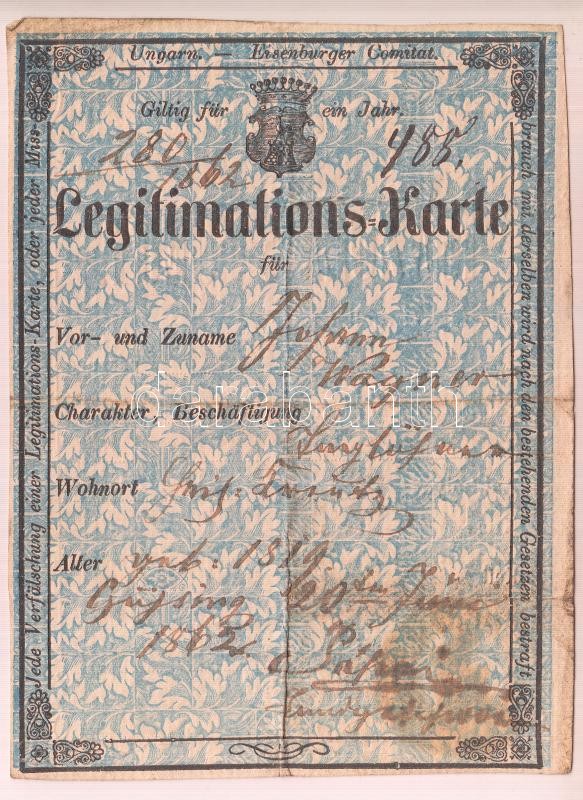 Ungarn. — Eisenburger Comitat.
Giltig für ein Jahr.
280/1862 488.
Legitimations=Karte
für
Vor- und Zuname Johann
Wagner
Charakter, Beschäftigung
Taglöhner
Wohnort Heil: Kreutz
Alter geb: 1819
Güssing 20ten Juni
1862.
Jede Verfälschung einer Legitimations-Karte, oder jeder Miss-
brauch mit derselben wird nach den bestehenden Gesetzen bestraft.
darabanth